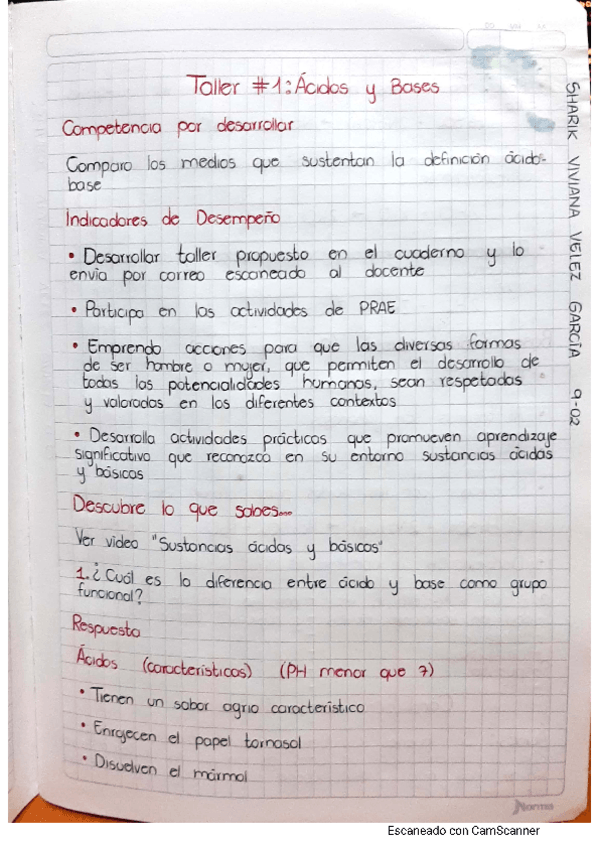 Taller #1: Ácidos y Bases
Competencia por desarrollar
Comparo los medios que sustentan la definición ácido-
base
Indicadores de Desempeño
• Desarrollar taller propuesto en el cuaderno y lo
envia por correo escaneado al docente
• Participa en las actividades de PRAE
• Emprendo acciones para que las diversas formas
de ser hombre o mujer, que permiten el desarrollo de
todas las potencialidades humanas, sean respetadas
y valoradas en los diferentes contextos
• Desarrolla actividades prácticas que promueven aprendizaje
significativo que reconozca en su entorno sustancias ácidas
y básicas
Descubre lo que sabes...
Ver video "Sustancias ácidas y básicas"
1. ¿Cuál es la diferencia entre ácido y base como grupo
funcional?
Respuesta
Ácidos (características) (PH menor que 7)
• Tienen un sabor agrio característico
• Enrojecen el papel tornasol
• Disuelven el mármol
SHARIK VIVIANA VELEZ GARCÍA 9-02
Norma
Escaneado con CamScanner